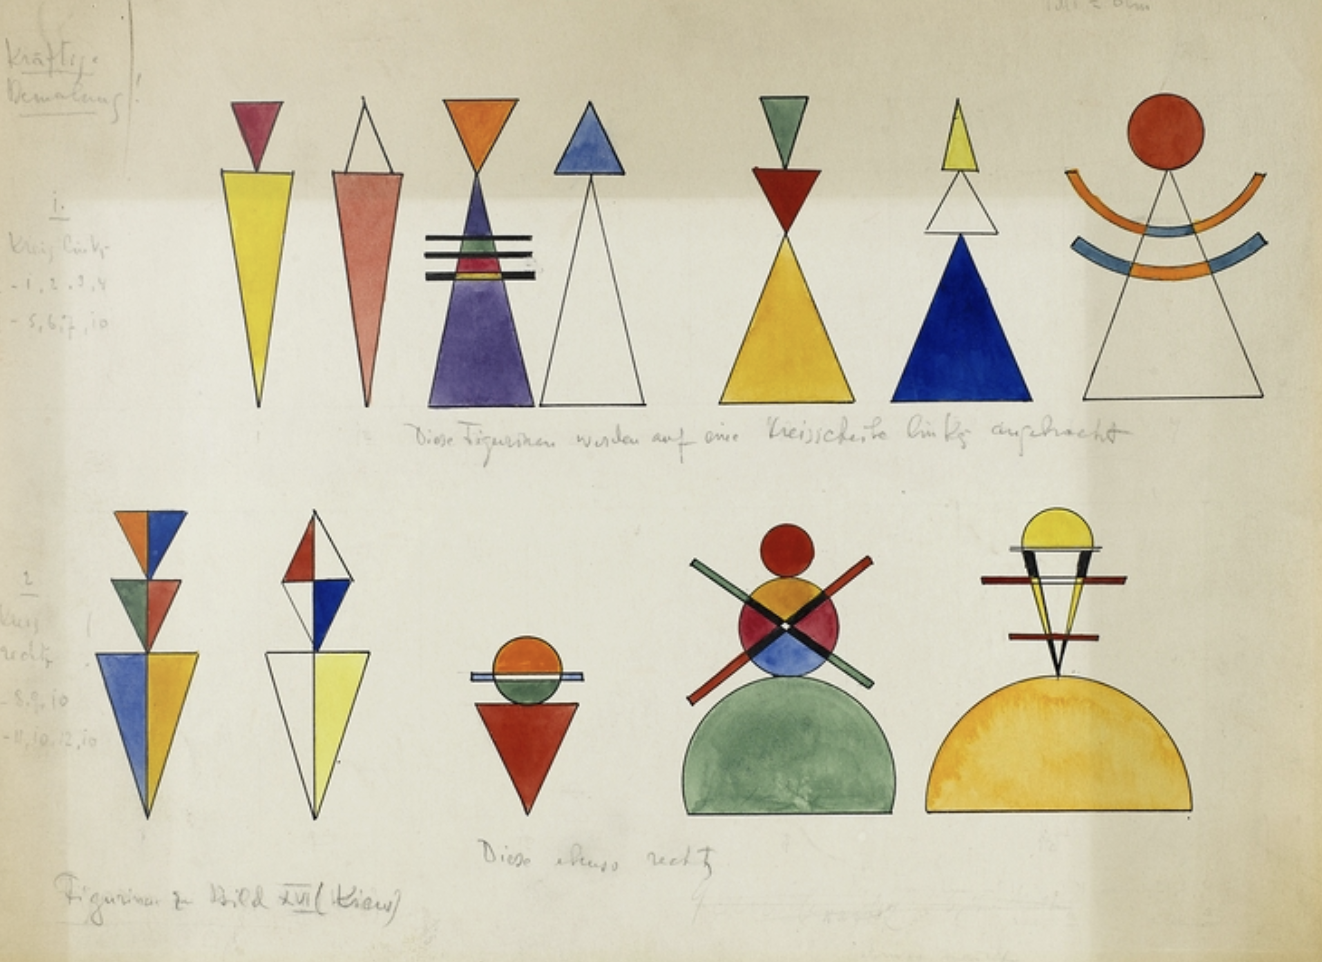 Kräftige
Bemalung!
1.
Kreis links
- 1, 2, 3, 4
- 5, 6, 7, 10
Diese Figurinen werden auf eine Kreisscheibe links angebracht
2
Kreis
rechts
- 8, 9, 10
- 11, 10, 12, 10
Diese ebenso rechts
Figurinen zu Bild XVI (Kiew)